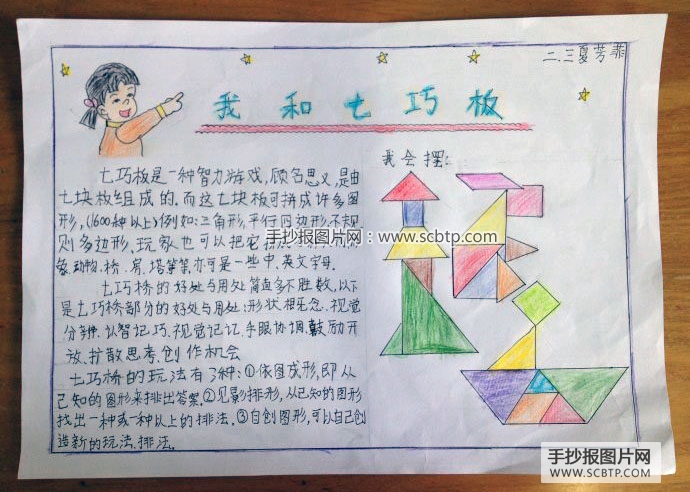 二.三夏芳菲
我和七巧板
七巧板是一种智力游戏,顾名思义,是由
七块板组成的.而这七块板可拼成许多图
形,(1600种以上)例如:三角形,平行四边形,不规
则多边形.玩家也可以把它
象,动物.桥.房.塔等等,亦可是一些中.英文字母.
七巧桥的好处与用处简直多不胜数,以下
是七巧桥部分的好处与用处:形状相念.视觉
分辨.认智记巧.视觉记记.手眼协调.鼓励开
放.扩散思考.创作机会
七巧桥的玩法有了种:①依图成形,即从
己知的图形来排出答案.②见影排形,从己知的图形
找出一种或一种以上的排法.③自创图形,可以自己创
造新的玩法.排法.
我会摆:
手抄报图片网:www.scbtp.com
手抄报图片网
WWW.SCBTP.COM